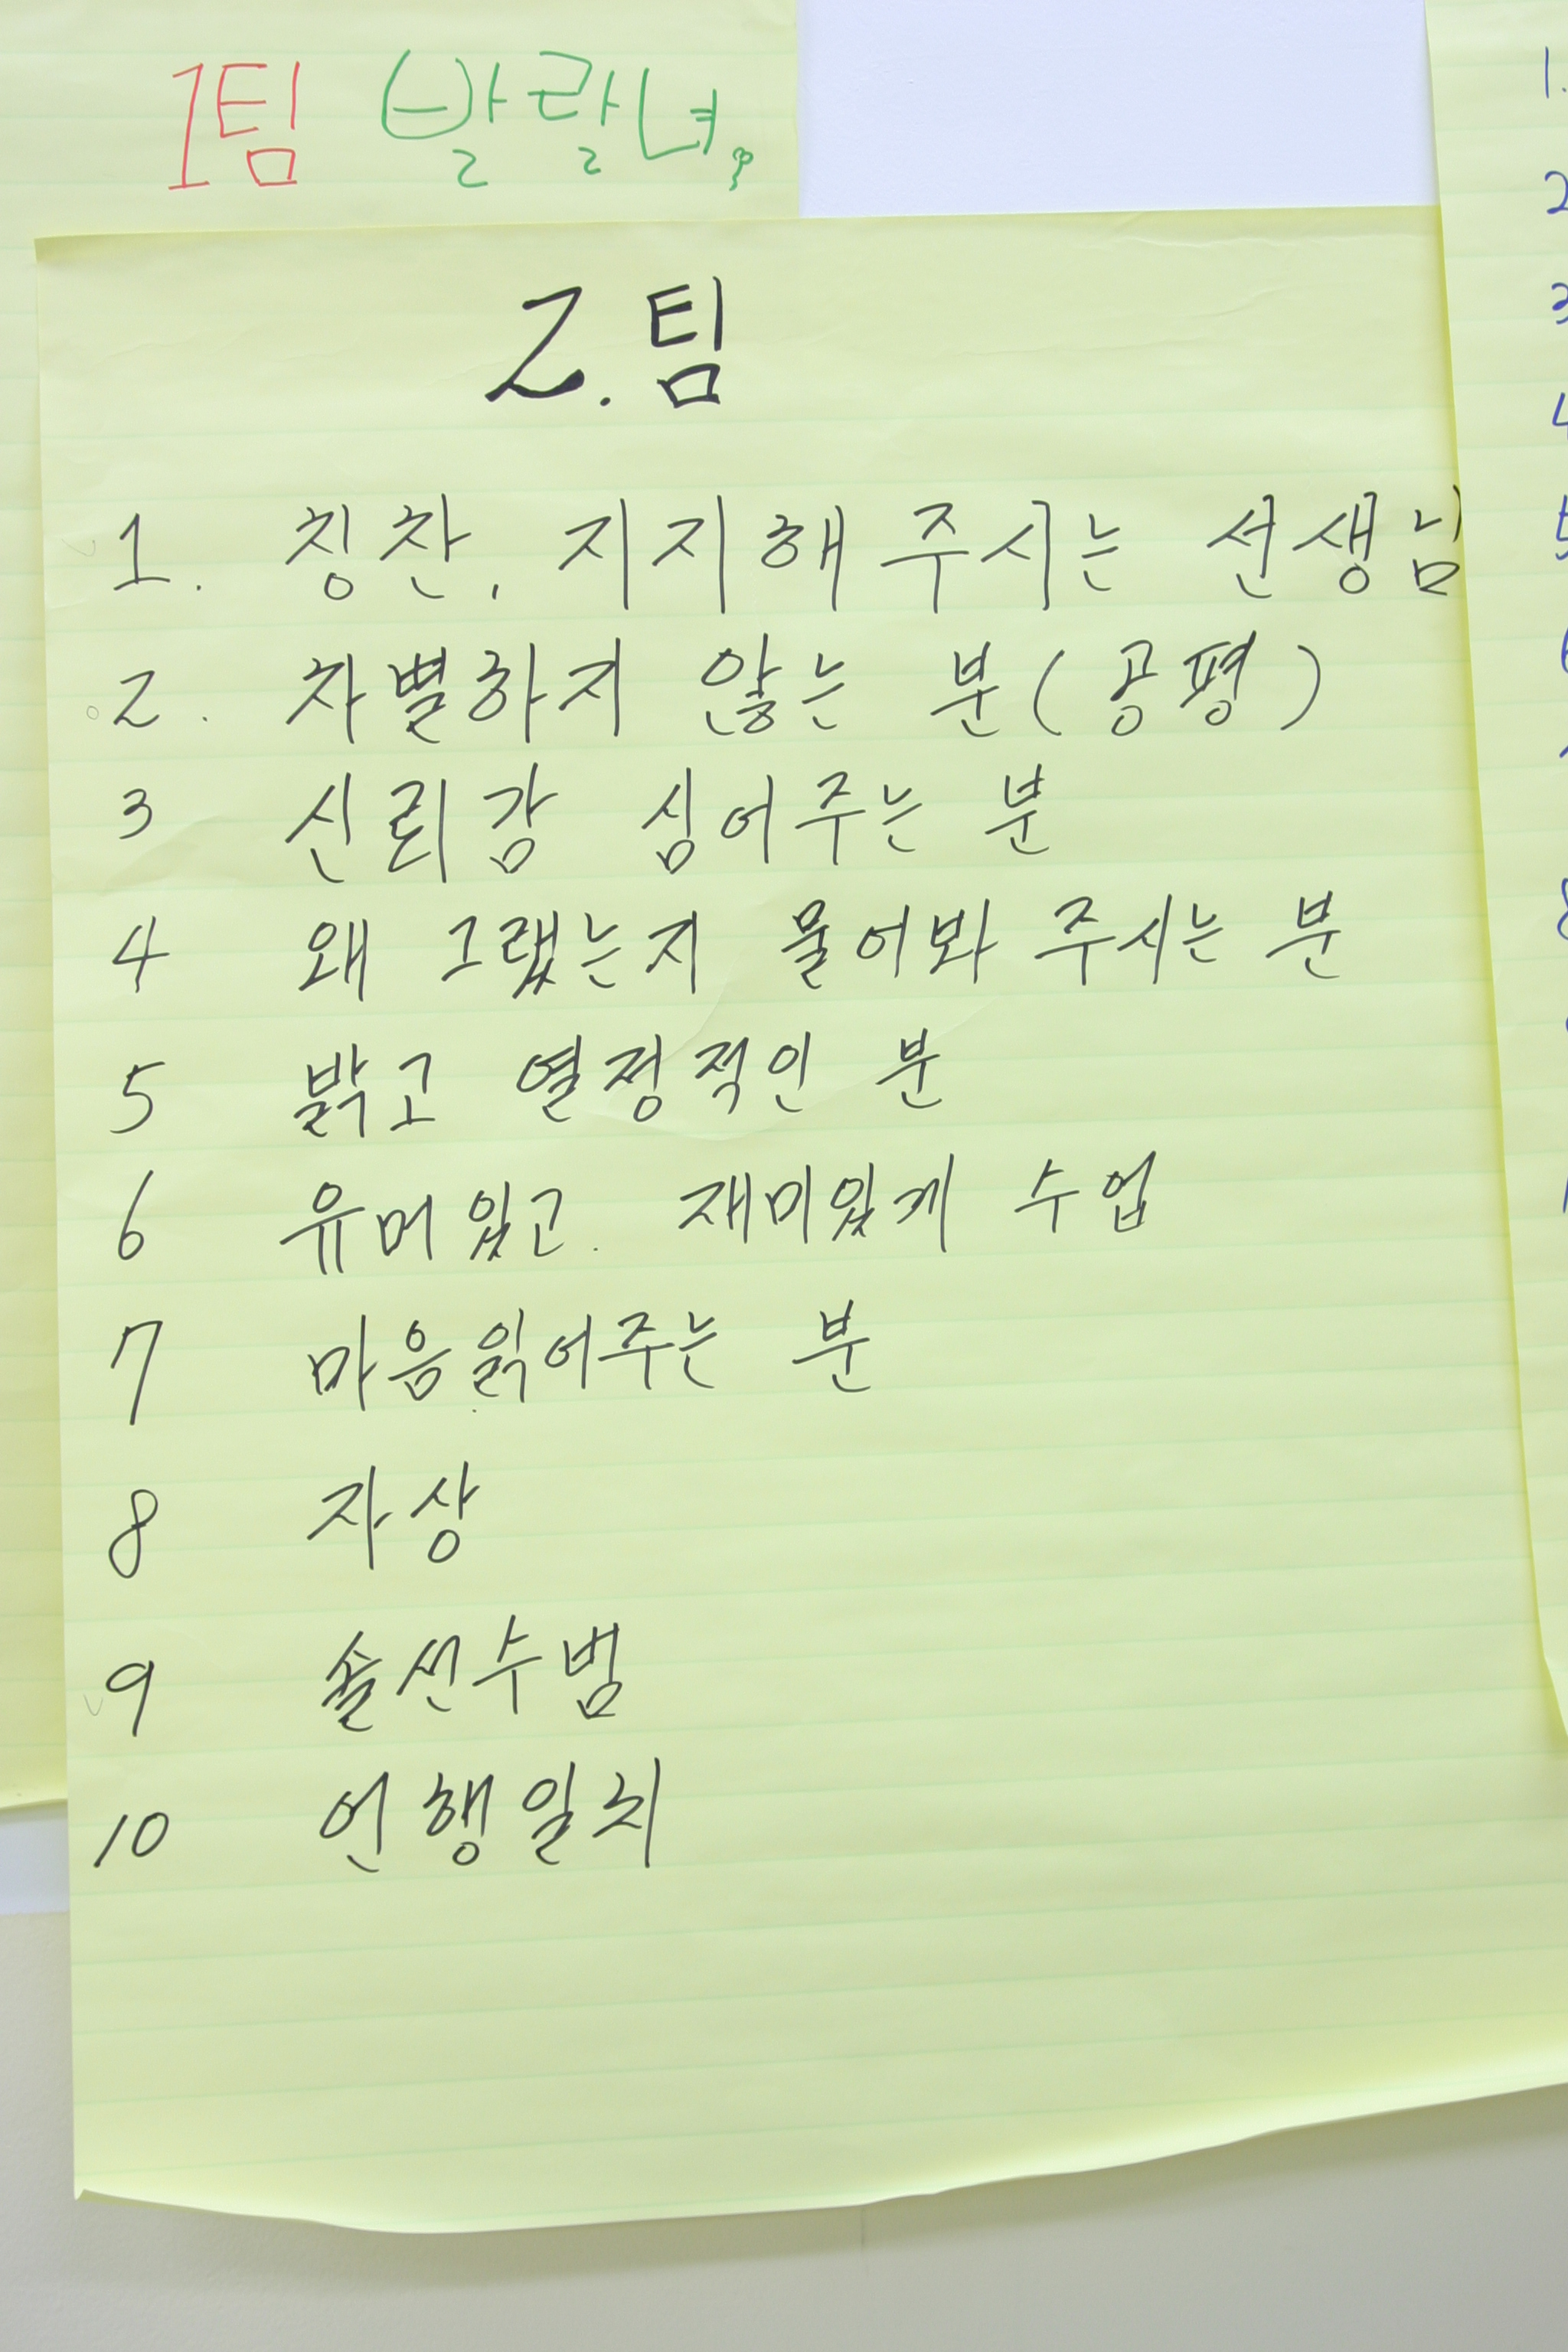 1팀 발랄녀,
2. 팀
1. 칭찬, 지지해 주시는 선생님
2. 차별하지 않는 분(공평)
3 신뢰감 심어주는 분
4 왜 그랬는지 물어봐 주시는 분
5 밝고 열정적인 분
6 유머있고. 재미있게 수업
7 마음읽어주는 분
8 자상
9 솔선수범
10 언행일치
1.
2
3
4
5
6
8